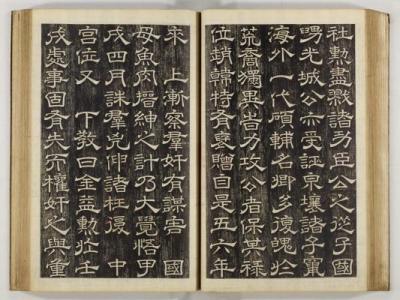 社勳盡戮諸功臣公之從子國
舅光城公亦受誣泉壤諸子竄
海外一代碩輔名卿多復魄於
荒裔獨異旹力攻公者保其祿
位趙韓特各褒贈自是五六年
來 上漸察羣奸有謀害 國
母魚肉搢紳之計乃大覺悟甲
戌四月誅羣兇伸諸枉復 中
宮位又 下敎曰金益勳於壬
戌處事固有失宜權奸之與重